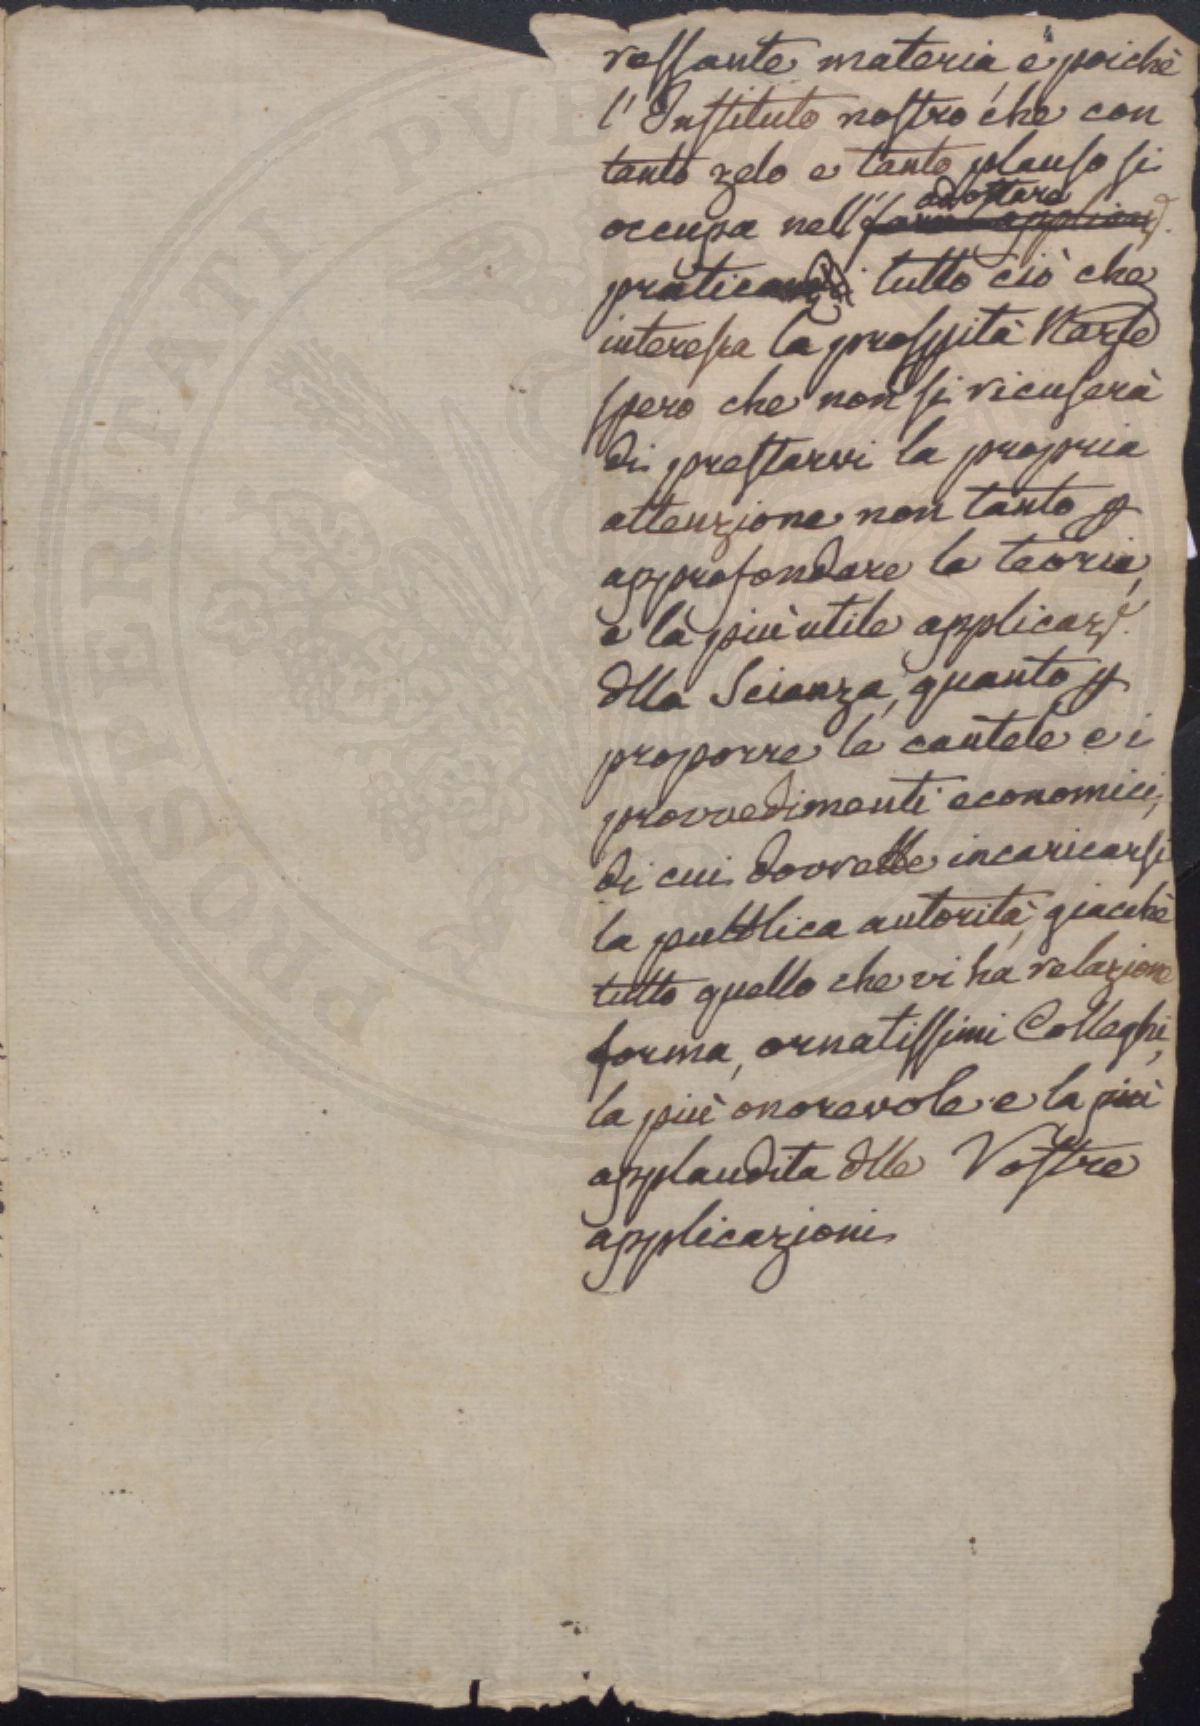 PROSPERITATI PUB
ressante materia, e poichè
l'Instituto nostro, che con
tanto zelo e tanto plauso si
adottare
occupa nell'
pratica tutto ciò che
interessa la prosp̱ità
spero che non si ricuserà
di prestarvi la propria
attenzione non tanto ꝑ
approfondare la teoria,
e la più utile applicazᵉ.
dlla Scienza, quanto ꝑ
proporre le cautele e i
provvedimenti economici,
di cui dovrebbe incaricarsi
la pubblica autorità, giacchè
tutto quello che vi ha relazione
forma, ornatissimi Colleghi,
la più onorevole e la più
applaudita dlle Vostre
applicazioni